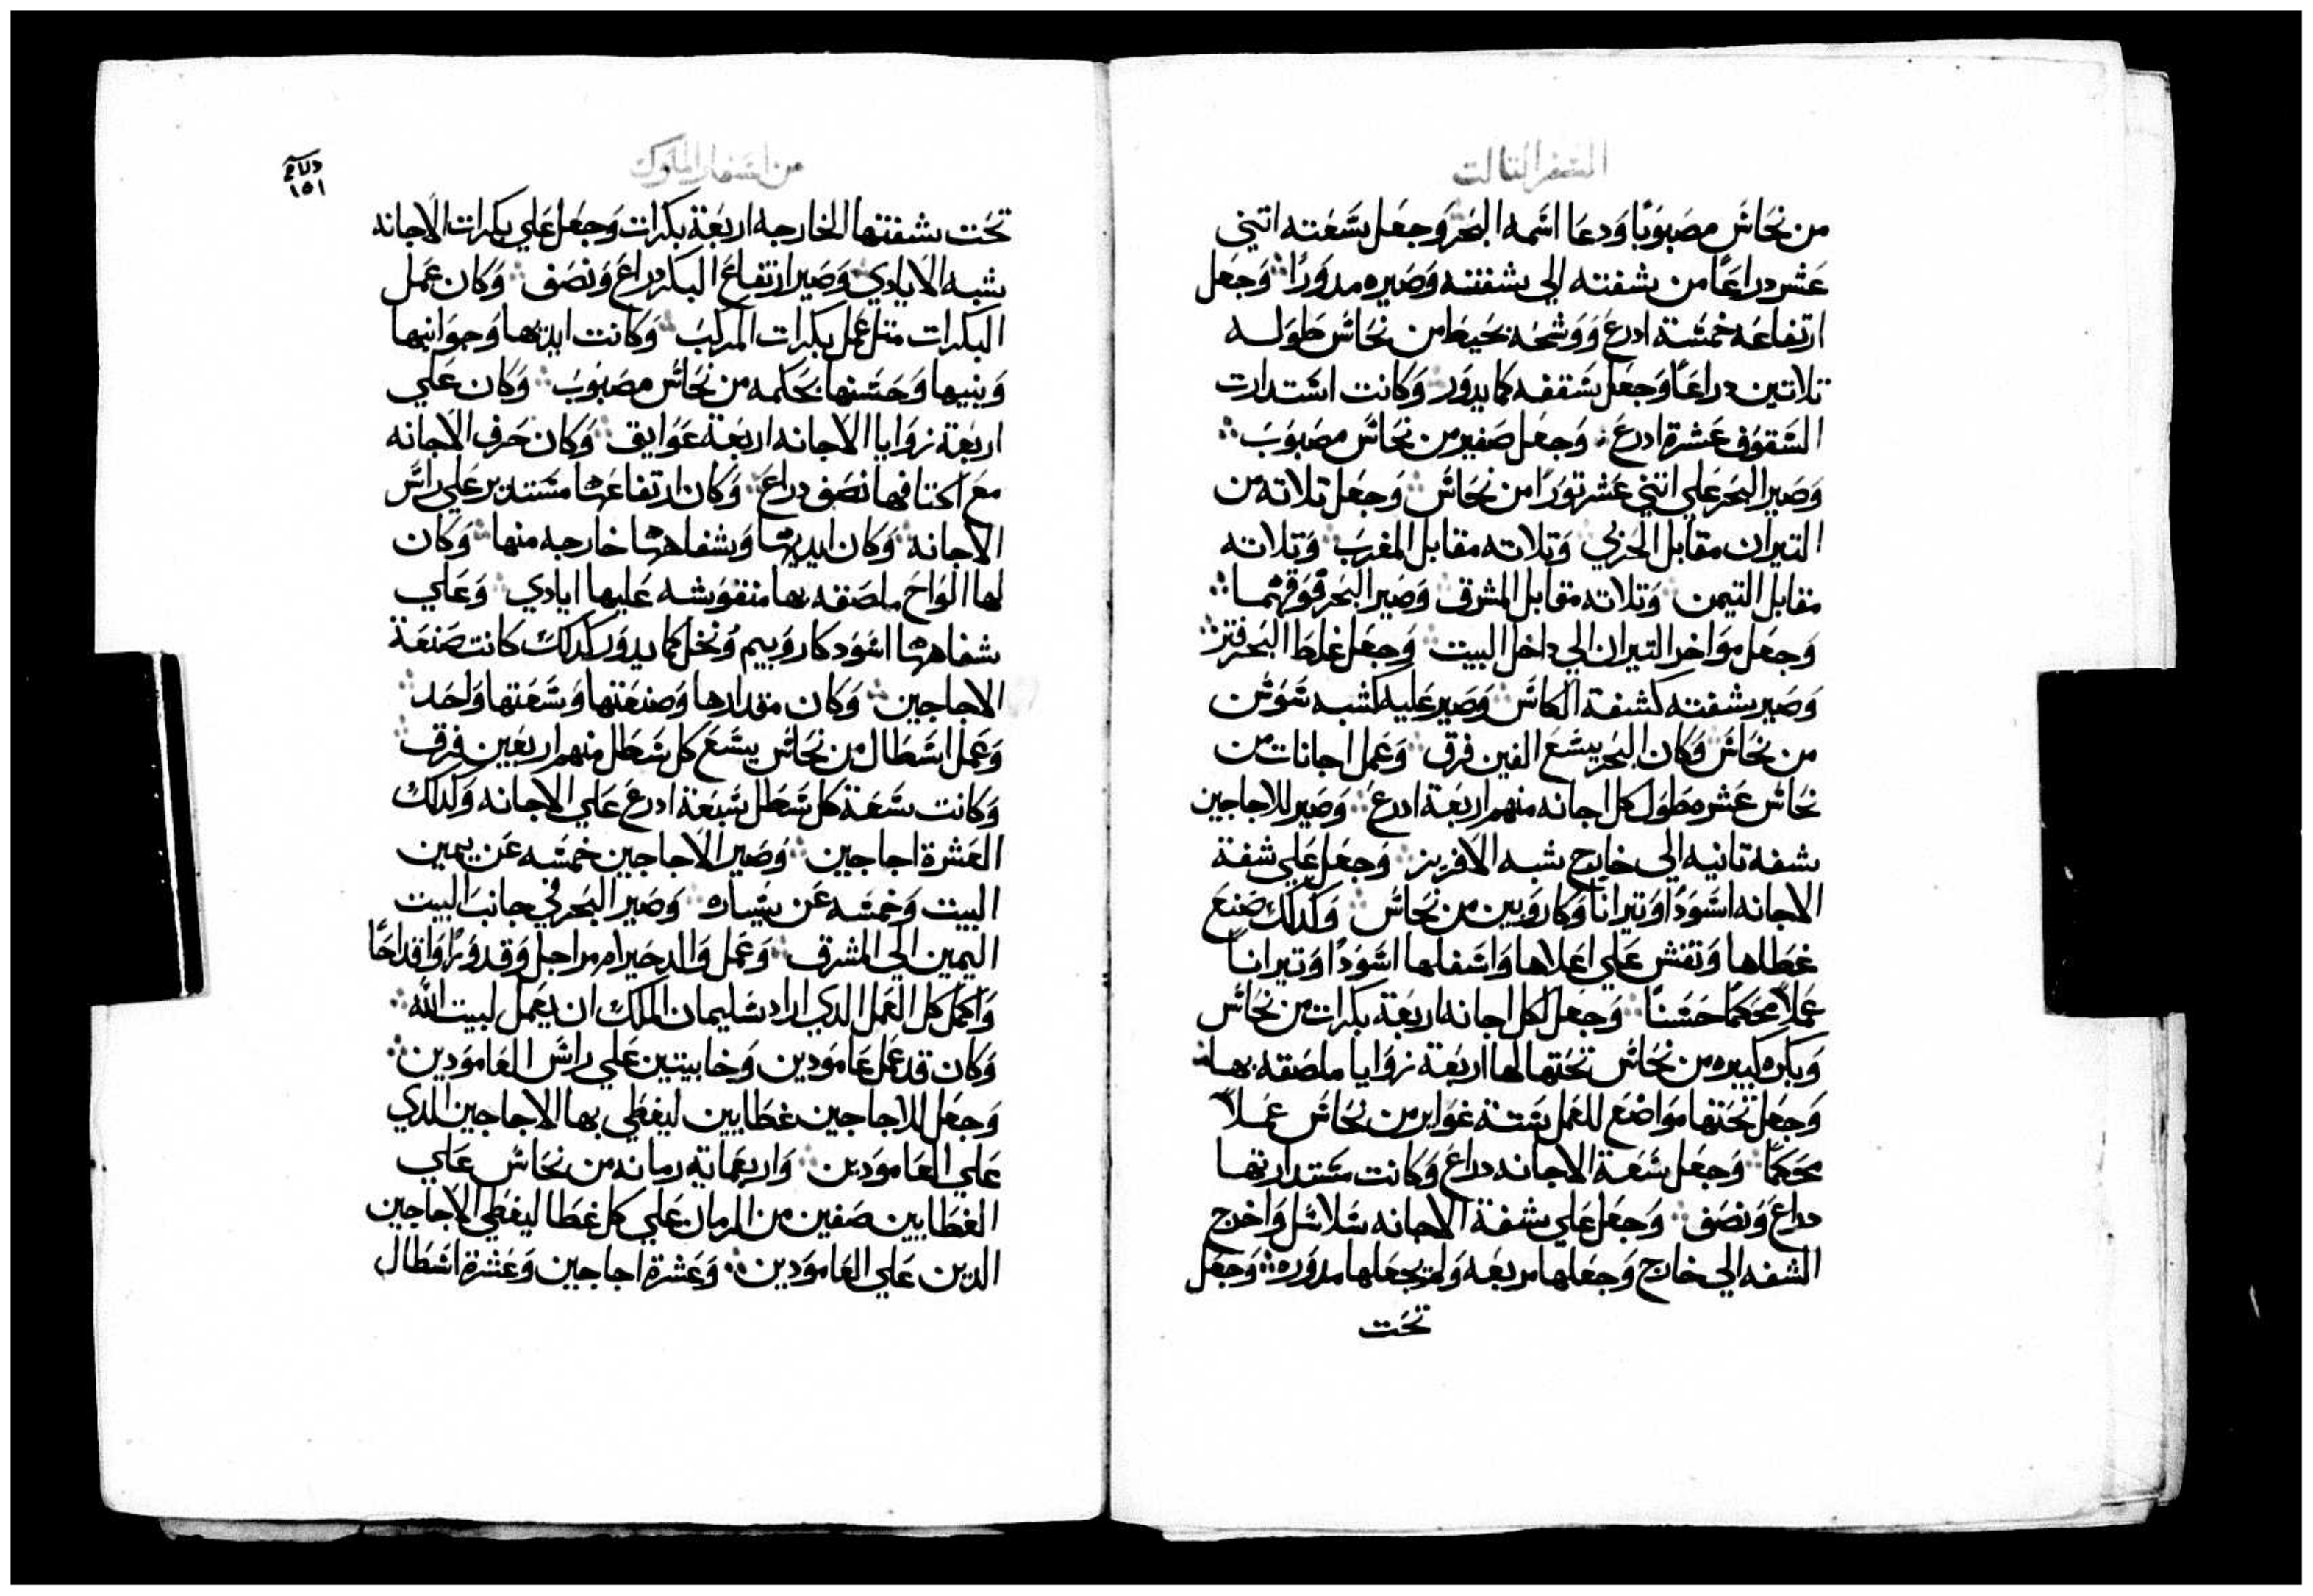 السفر التالت
من نحاس مصبوبا ودعا اسمه البحر وجعل سعته اتني
عشر دراعا من شفته الى شفته وصيره مدورا وجعل
ارتفاعه خمسة ادرع ووشحه بخيط من نحاس طوله
تلاتين دراعا وجعل سقفه كما يدور وكانت استدارت
السقوف عشرة ادرع وجعل صفير من نحاس مصبوب
وصير البحر علي اتني عشر تورا من نحاس وجعل تلاته من
التيران مقابل الجربي وتلاته مقابل المغرب وتلاته
مقابل التيمن وتلاته مقابل المشرق وصير البحر فوقهما
وجعل مواخر التيران الي داخل البيت وجعل غلظ البحر فتر
وصير شفته كشفة الكاس وصير عليه كشبه سوسن
من نحاس وكان البحر يسع الفين فرق وعمل اجانات من
نحاس عشر مطول كل اجانه منهم اربعة ادرع وصير للاجاجين
شفه تانيه الى خارج شبه الافريز وجعل علي شفة
الاجانه اسودا وتيرانا وكاروبين من نحاس وكدلك صنع
غطاها ونقش علي اعلاها واسفلها اسودا وتيرانا
عملا محكما حسنا وجعل لكل اجانه اربعة بكرات من نحاس
وبكره كبيره من نحاس تحتها لها اربعة زوايا ملصقه بها
وجعل تحتها مواضع للعمل ستة غوابر من نحاس عملا
محكما وجعل سعة الاجانه دراع وكانت مستدارتها
دراع ونصف وجعل علي شفة الاجانه سلاسل واخرج
الشفه الي خارج وجعلها مربعه ولم يجعلها مدوره وجعل
تحت
من اسفار الملوك
١٥١
تحت شفتها الخارجه اربعة بكرات وجعل علي بكرات الاجانه
شبه الايادي وصير ارتفاع البكر دراع ونصف وكان عمل
البكرات متل عمل بكرات المركب وكانت ايديها وجوانبها
وبنيها وحسنها بحكمه من نحاس مصبوب وكان علي
اربعة زوايا الاجانه اربعة عوايق وكان حرف الاجانه
مع اكتافها نصف دراع وكان ارتفاعها مستدير علي راس
الاجانه وكان ايديها وشفاهها خارجه منها وكان
لها الواح ملصقه بها منقوشه عليها ايادي وعلي
شفاهها اسود كاروبيم ونخل كما يدور كدلك كانت صنعة
الاجاجين وكان مقدارها وصنعتها وسعتها واحد
وعمل اسطال من نحاس يسع كل سطل منهم اربعين فرق
وكانت سعة كل سطل سبعة ادرع علي الاجانه وكدلك
العشرة اجاجين وصير الاجاجين خمسه عن يمين
البيت وخمسه عن يساره وصير البحر في جانب البيت
اليمين الي المشرق وعمل والد حيرام مراجل وقدورا واقداحا
واكمل كل العمل الدي اراد سليمان الملك ان يعمل لبيت الله
وكان قد عمل عامودين وخابيتين علي راس العامودين
وجعل للاجاجين غطايين ليغطي بها الاجاجين الدي
علي العامودين واربعمايه رمانه من نحاس علي
الغطايين صفين من الرمان علي كل غطا ليغطي الاجاجين
الدين علي العامودين وعشرة اجاجين وعشرة اسطال